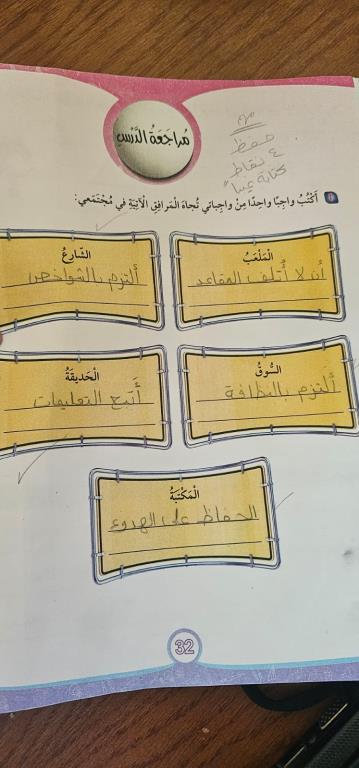 مُراجَعَةُ الدَّرْسِ
مهم
حفظ
٤ نقاط
كتابة غيبا
أَكْتُبُ واجِبًا واحِدًا مِنْ واجِباتي تُجاهَ الْمَرافِقِ الْآتِيَةِ في مُجْتَمَعي:
الْمَلْعَبُ
أن لا أُتلف المقاعد
الشّارِعُ
ألتزم بالشواخص
السّوقُ
ألتزم بالنظافة
الْحَديقَةُ
أَتبع التعليمات
الْمَكْتَبَةُ
الحفاظ على الهدوء
32